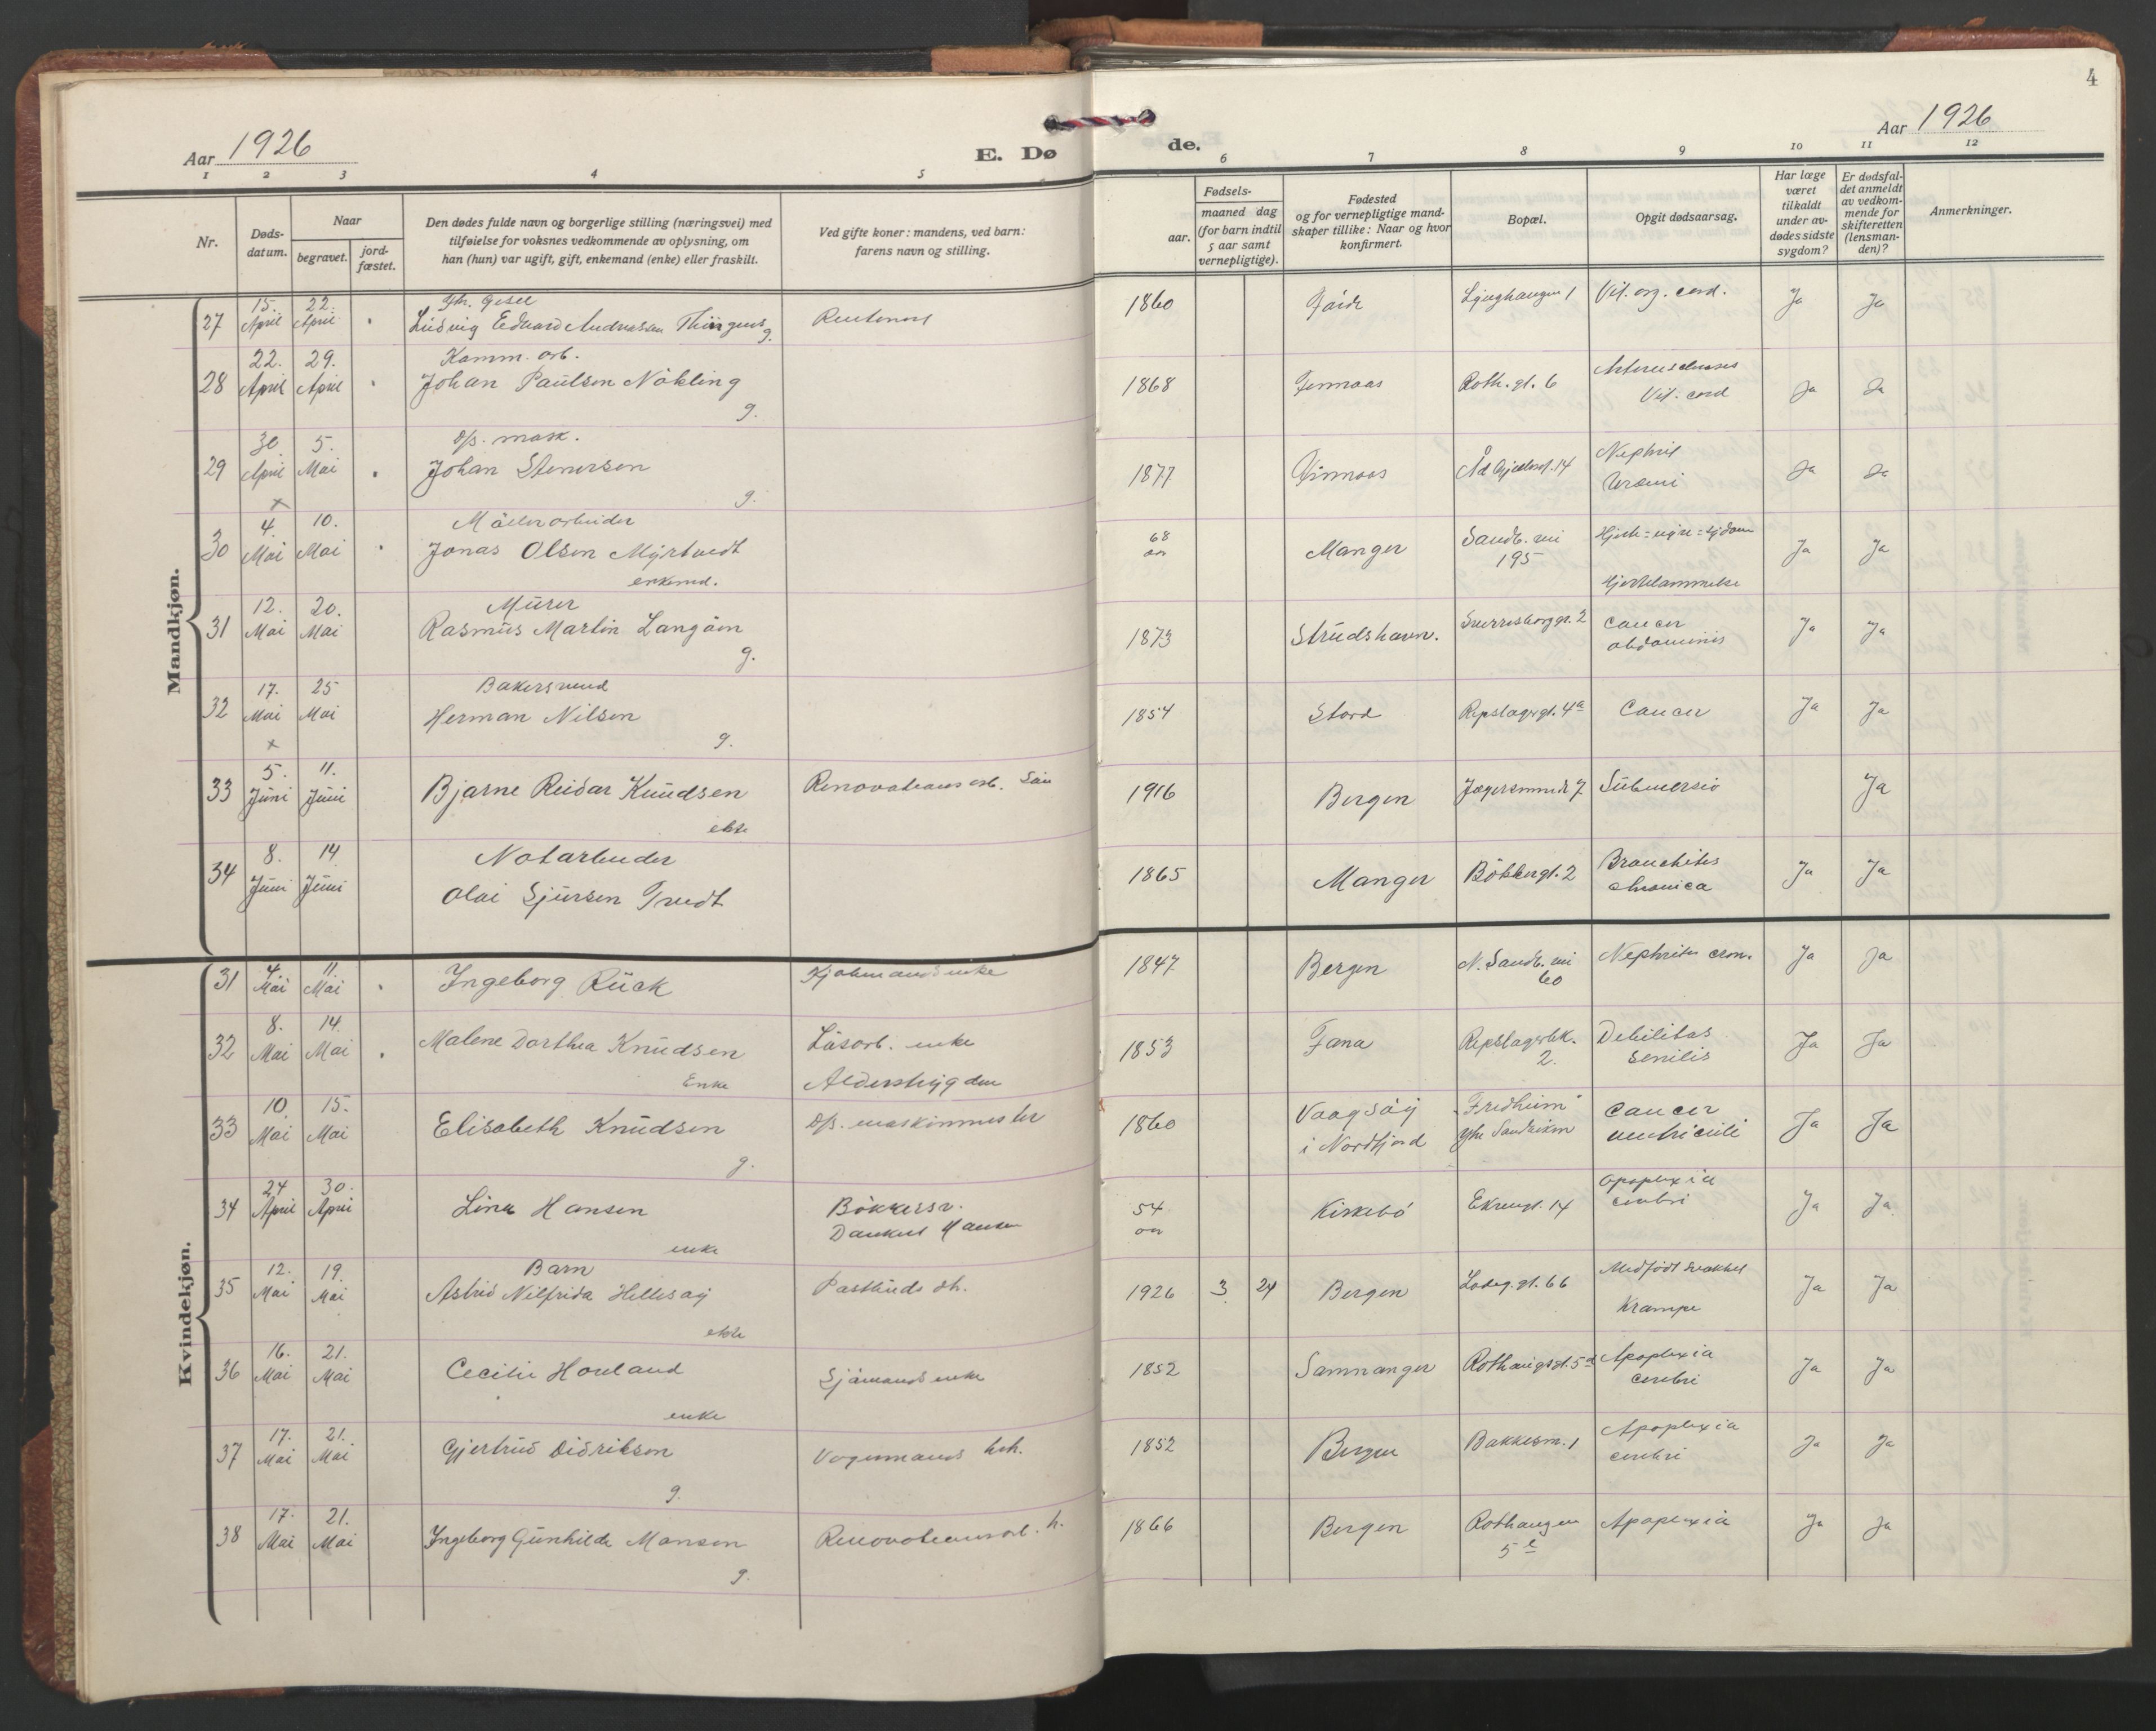 4
Aar 1926
E. Dø
de.
Aar 1926
1 2 3 4 5 6 7 8 9 10 11 12
Nr.
Døds-
datum.
Naar
begravet.
jord-
fæstet.
Den dødes fulde navn og borgerlige stilling (næringsvei) med
tilføielse for voksnes vedkommende av oplysning, om
han (hun) var ugift, gift, enkemand (enke) eller fraskilt.
Ved gifte koner: mandens, ved barn:
farens navn og stilling.
Fødsels-
aar.
maaned dag
(for barn indtil
5 aar samt
vernepligtige).
Fødested
og for vernepligtige mand-
skaper tillike: Naar og hvor
konfirmert.
Bopæl.
Opgit dødsaarsag.
Har læge
været
tilkaldt
under av-
dødes sidste
sygdom?
Er dødsfal-
det anmeldt
av vedkom-
mende for
skifteretten
(lensman-
den)?
Anmerkninger.
Mandkjøn.
27 15. April 22. April
Ludvig Edvard Andreassen g. 1860 Vit. org. cord. Ja Ja
28 22. April 29. April Komm. arb.
Johan Paulsen Nökling g. 1868 Roth. gt. 6 Vit. cord Ja Ja
29 30. April 5. Mai d/s. mask.
Johan Stenersen g. 1877 Nephrit Uræmi Ja Ja
30 4. Mai 10. Mai
Jonas Olsen Myrtvedt enkemd. 68 aar Manger Sandv. vei 195 Hjertelammelse Ja Ja
31 12. Mai 20. Mai Murer
Rasmus Martin Langöen g. 1873 Strudshavn. Sverresborggt. 2 Cancer abdominis Ja Ja
32 17. Mai 25 Mai Bakersvend
Herman Nilsen g. 1854 Stord Repslagergt. 4a Cancer Ja Ja
33 5. Juni 11. Juni
Bjarne Reidar Knudsen ekte Renovationsarb. Søn 1916 Bergen Submersio Ja
34 8. Juni 14 Juni Notarbeider
Olai Sjursen Tvedt 1865 Manger Bökkergt. 2 Bronchitis chronica Ja Ja
Kvindekjøn.
31 4. Mai 11. Mai Ingeborg Rück 1847 Bergen N. Sandv. vei 60 Nephritis cron. Ja Ja
32 8. Mai 14. Mai Malene Dorthea Knudsen Enke Løsarb. enke 1853 Fana Repslagerbk. 2. Debilitas senilis Ja Ja
33 10. Mai 15. Mai Elisabeth Knudsen g. d/s. maskinmester 1860 Vaagsöy i Nordfjord "Fredheim" Cancer ventriculi Ja Ja
34 24 April 30. April Lina Hansen enke Bökkersv. Hansen 54 aar Kirkebö Ekrengt. 14 Apoplexia cerebri Ja Ja
35 12. Mai 19. Mai Barn
Astrid Nilfrida Hellesöy ekte Postbuds dt. 1926 3 24 Bergen Ladeg. gt. 66 Medfödt svakhet Krampe Ja Ja
36 16. Mai 21. Mai Cecilie Hovland enke Sjömands enke 1852 Samnanger Rothaugsgt. 5d Apoplexia cerebri Ja Ja
37 17. Mai 21. Mai Gjertrud Didriksen g. Vognmands hst. 1852 Bergen Bakkesm. 1 Apoplexia cerebri Ja Ja
38 17. Mai 21. Mai Ingeborg Gunhilda Monsen g. Renovationsarb. h. 1866 Bergen Rothaugen 5 Apoplexia Ja Ja